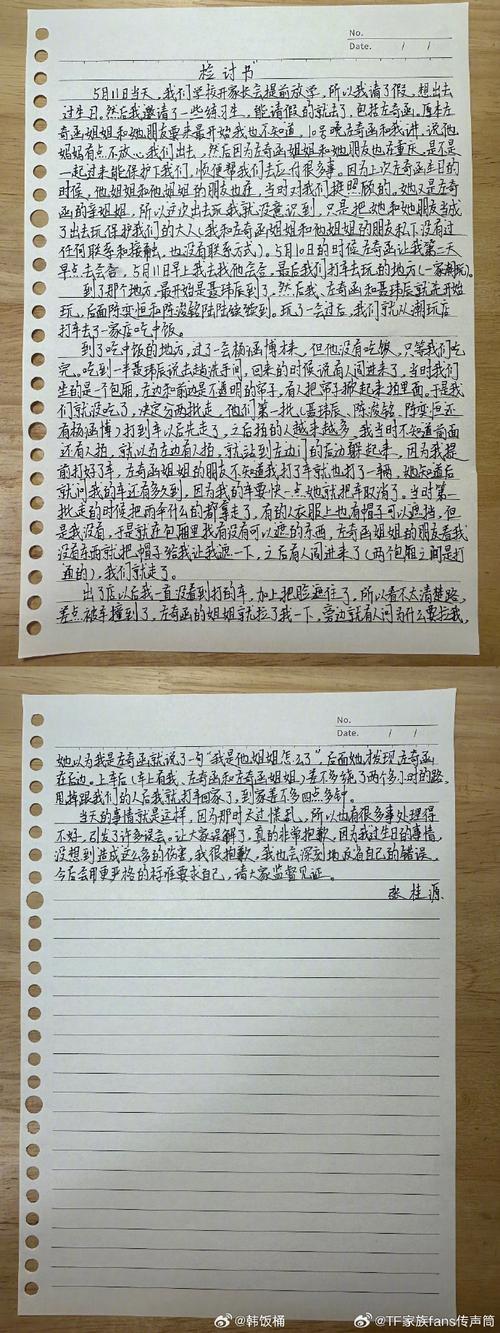 No.
Date. / /
检讨书
5月11日当天,我们学校开家长会提前放学,所以我请了假,想出去
过生日。然后我邀请了一些练习生,能请假的就去了,包括左奇函。原本左
奇函姐姐和她朋友要来最开始我也不知道,10号晚左奇函和我讲,说他
妈妈有点不放心我们出去,然后因为左奇函姐姐和她朋友也在重庆,是不是
一起过来能保护下我们,顺便帮我们去应付很多事,因为上次左奇函生日的
时候,他姐姐和他姐姐的朋友也在,当时对我们挺照顾的,她又是左奇
函的亲姐姐,所以这次出去玩我就没意识到,只是把她和她朋友当成
了出去玩保护我们的大人(我和左奇函姐姐和他姐姐的朋友私下没有过
任何联系和接触,也没有联系方式)。5月10日的时候左奇函让我第二天
早点去会合,5月11日早上我去找他会合,最后我们打车去玩的地方(一家潮玩)。
到了那个地方,最开始是聂玮辰到了,然后我、左奇函和聂玮辰就先开始
玩,后面陈奕恒和陈浚铭陆陆续续到。玩了一会过后,我们就从潮玩店
打车去了一家店吃中饭。
到了吃中饭的地方,过了一会杨涵博才来,但他没有吃饭,只等我们吃
完。吃到一半聂玮辰说出去趟洗手间,回来的时候说有人闯进来了,当时我们
坐的是一个包厢,左边和前边是不透明的帘子,有人把帘子掀起来拍里面。于是我
们就没吃了,决定分两批走,他们第一批(聂玮辰、陈浚铭、陈奕恒还
有杨涵博)打到车以后先走了,之后拍的人越来越多,我当时不知道前面
还有人拍,就以为左边有人拍,就站到左边门的后边躲起来,因为我提
前打好了车,左奇函姐姐的朋友不知道我打了车就也打了一辆,她知道后
就问我的车还有多久到,因为我的车要快一点她就把车取消了,当时第一
批走的时候把雨伞什么的都拿走了,有的人衣服上也有帽子可以遮挡,但
是我没有,于是就在包厢里找有没有可以遮的东西,左奇函姐姐的朋友看我
没有东西就把帽子给我让我遮一下,之后有人闯进来了(两个包厢之间是打
通的),我们就走了。
出了店以后我一直没看到打的车,加上把脸遮住了,所以看不太清楚路,
差点被车撞到了,左奇函的姐姐就拉了我一下,旁边就有人问为什么要拉我,
No.
Date. / /
她以为我是左奇函就说了一句"我是他姐姐怎么了",后面她才发现左奇函
在后边。上车后(车上有我、左奇函和左奇函姐姐)差不多绕了两个多小时的路,
甩掉跟我们的人后我就打车回家了,到家差不多四点多钟。
当天的事情就是这样,因为那时太慌乱,所以也有很多事处理得
不好,引发了许多误会。让大家误解了,真的非常抱歉,因为我过生日的事情,
没想到造成这么多的伤害,我很抱歉,我也会深刻地反省自己的错误,
今后会用更严格的标准要求自己,请大家监督见证。
张桂源
@韩饭桶 @TF家族fans传声筒